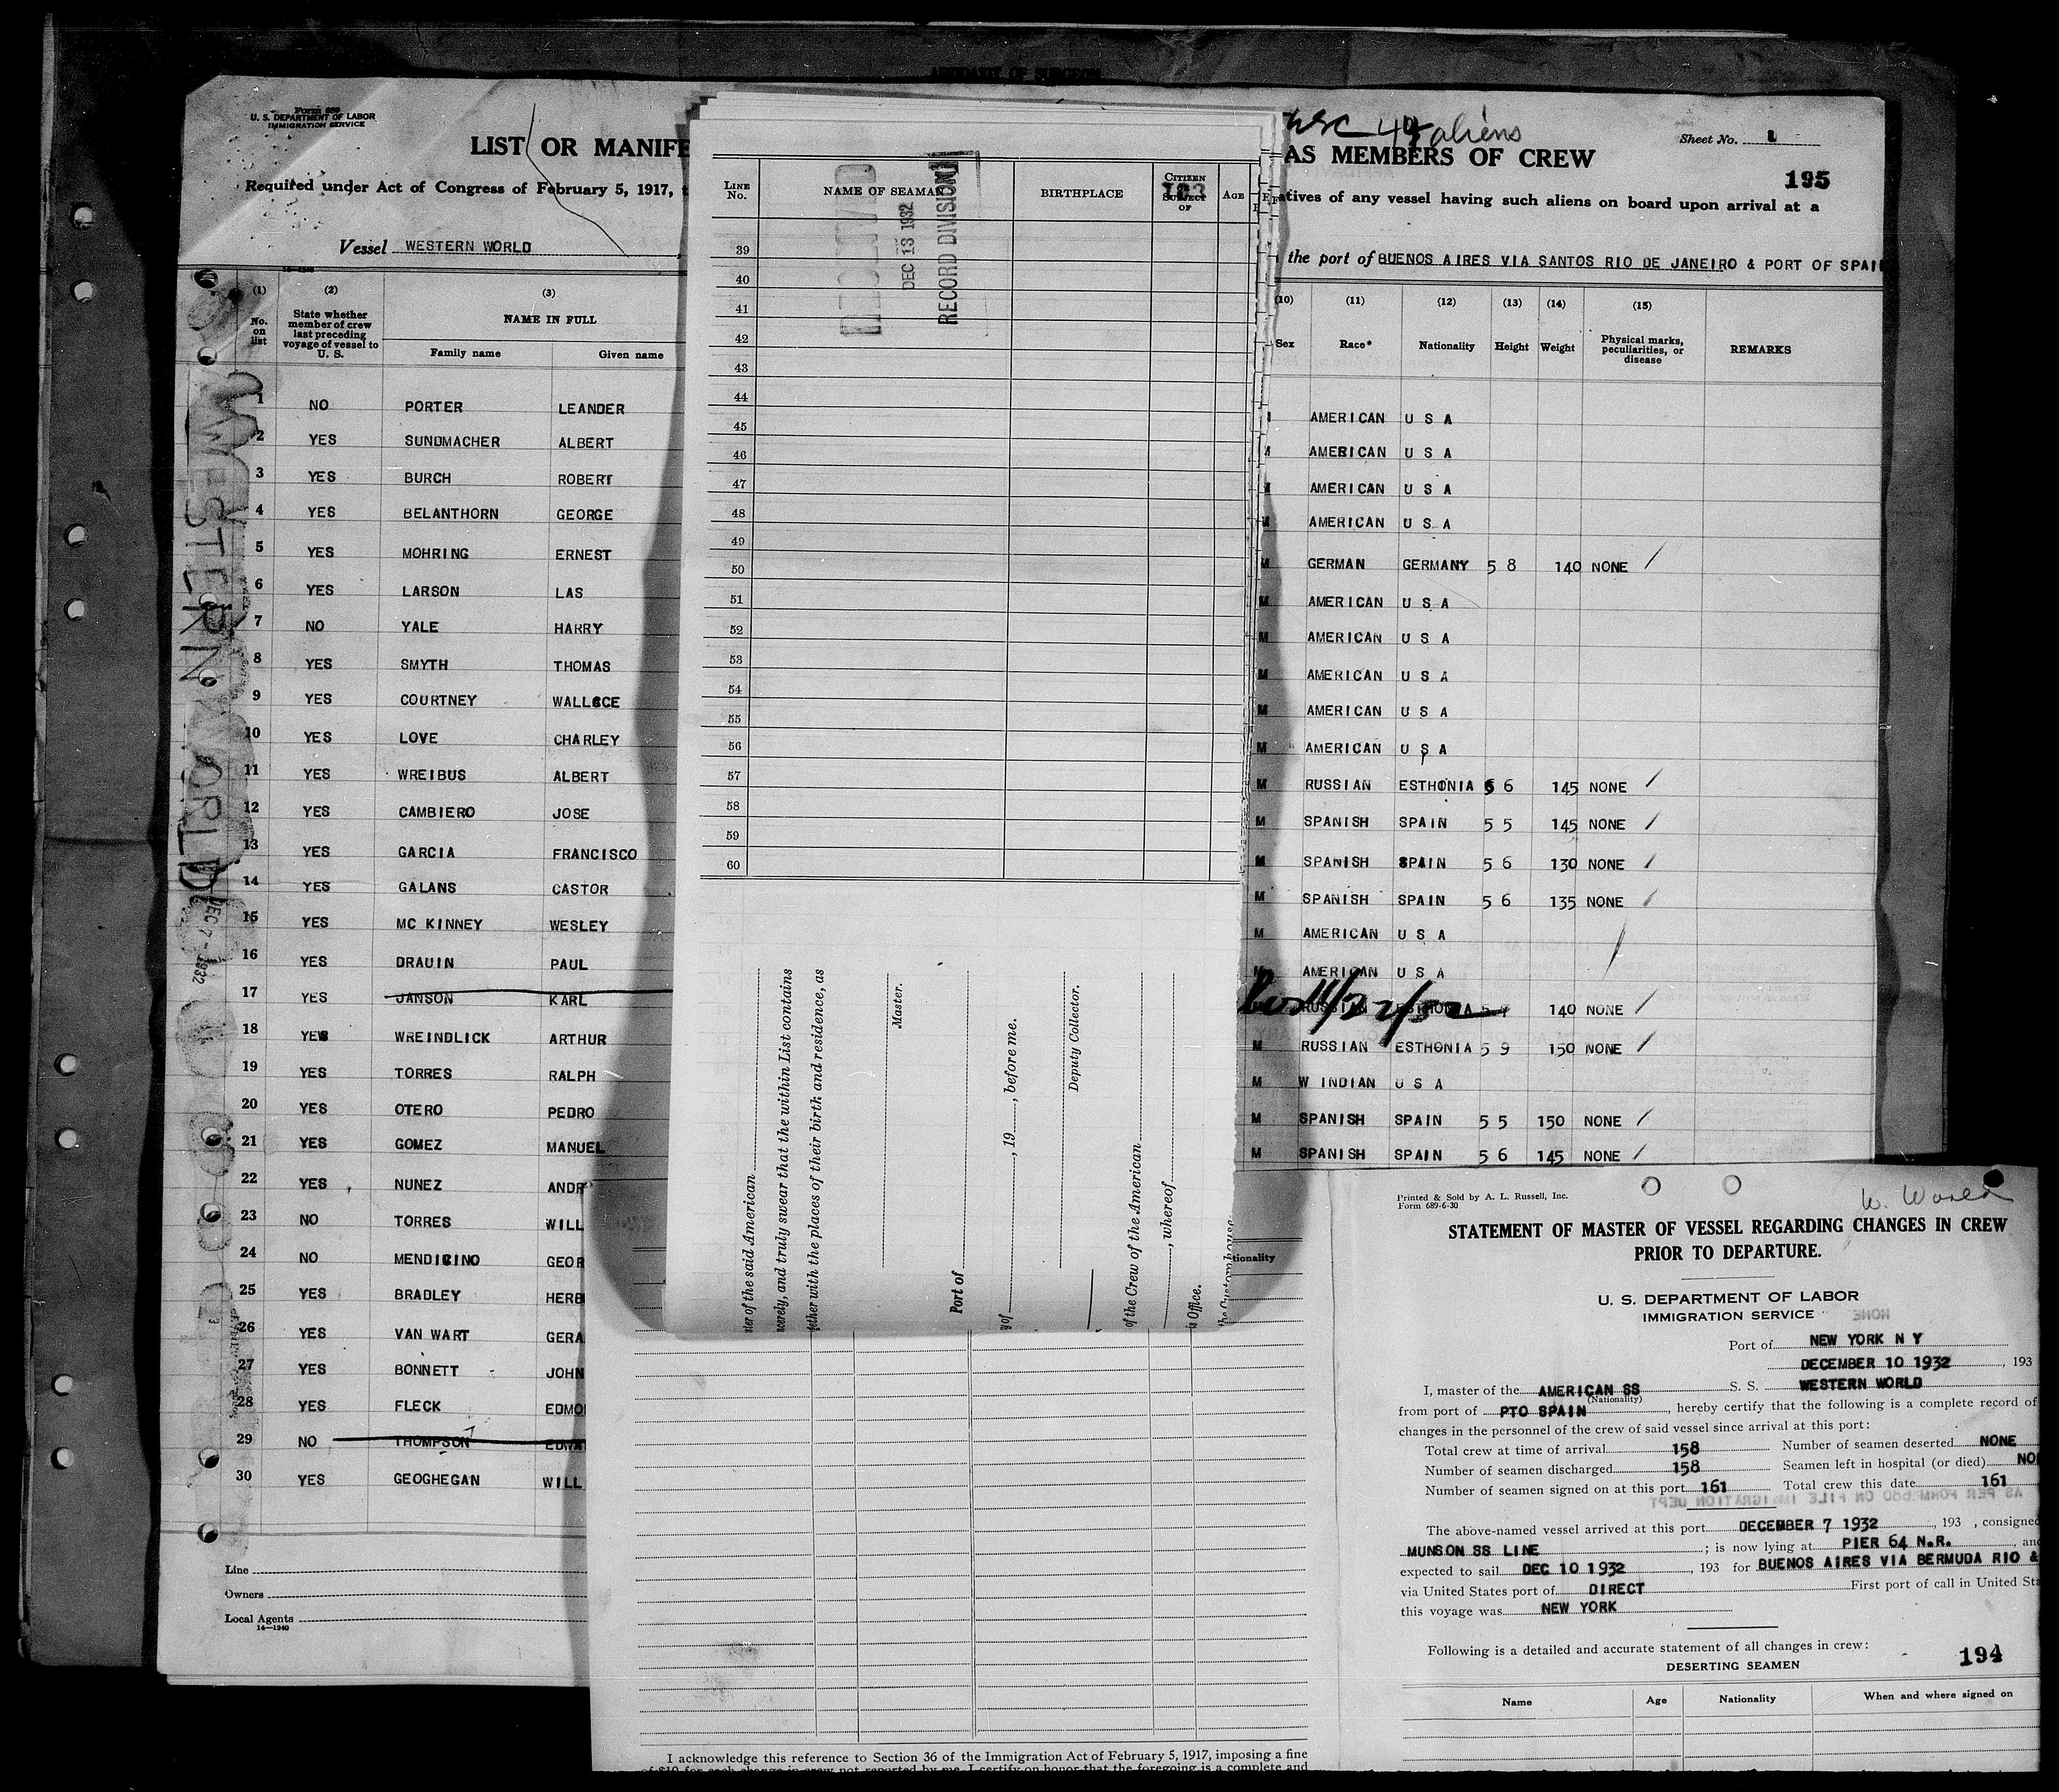 Form 689
U. S. DEPARTMENT OF LABOR
IMMIGRATION SERVICE
LIST OR MANIFE
Required under Act of Congress of February 5, 1917, t
Vessel WESTERN WORLD
(1) (2) (3)
No. on list
State whether member of crew last preceding voyage of vessel to U. S.
NAME IN FULL
Family name Given name
1 NO PORTER LEANDER
2 YES SUNDMACHER ALBERT
3 YES BURCH ROBERT
4 YES BELANTHORN GEORGE
5 YES MOHRING ERNEST
6 YES LARSON LAS
7 NO YALE HARRY
8 YES SMYTH THOMAS
9 YES COURTNEY WALLECE
10 YES LOVE CHARLEY
11 YES WREIBUS ALBERT
12 YES CAMBIERO JOSE
13 YES GARCIA FRANCISCO
14 YES GALANS CASTOR
15 YES MC KINNEY WESLEY
16 YES DRAUIN PAUL
17 YES JANSON KARL
18 YES WREINDLICK ARTHUR
19 YES TORRES RALPH
20 YES OTERO PEDRO
21 YES GOMEZ MANUEL
22 YES NUNEZ ANDR
23 NO TORRES WILL
24 NO MENDICINO GEOR
25 YES BRADLEY HERB
26 YES VAN WART GERA
27 YES BONNETT JOHN
28 YES FLECK EDMO
29 NO THOMPSON EDWA
30 YES GEOGHEGAN WILL
Line
Owners
Local Agents
14—1240
WESTERN WORLD
DEC 7 - 1932
LINE No. NAME OF SEAMAN BIRTHPLACE CITIZEN SUBJECT OF AGE
193
DEC 13 1932
RECORD DIVISION
39
40
41
42
43
44
45
46
47
48
49
50
51
52
53
54
55
56
57
58
59
60
ter of the said American
ncerely, and truly swear that the within List contains
gether with the places of their birth and residence, as
Master.
Port of
y of , 19 , before me.
Deputy Collector.
of the Crew of the American
, whereof
s Office.
the Customhouse
tionality
49 aliens
Sheet No. 1
AS MEMBERS OF CREW
195
atives of any vessel having such aliens on board upon arrival at a
the port of BUENOS AIRES VIA SANTOS RIO DE JANEIRO & PORT OF SPAIN
(10) (11) (12) (13) (14) (15)
Sex Race* Nationality Height Weight Physical marks, peculiarities, or disease REMARKS
AMERICAN U S A
AMERICAN U S A
AMERICAN U S A
M AMERICAN U S A
M GERMAN GERMANY 5 8 140 NONE
M AMERICAN U S A
M AMERICAN U S A
M AMERICAN U S A
M AMERICAN U S A
M AMERICAN U S A
M RUSSIAN ESTHONIA 6 6 145 NONE
M SPANISH SPAIN 5 5 145 NONE
M SPANISH SPAIN 5 6 130 NONE
M SPANISH SPAIN 5 6 135 NONE
M AMERICAN U S A
M AMERICAN U S A
RUSSIAN ESTHONIA 140 NONE
11/22/32
M RUSSIAN ESTHONIA 5 9 150 NONE
M W INDIAN U S A
M SPANISH SPAIN 5 5 150 NONE
M SPANISH SPAIN 5 6 145 NONE
Printed & Sold by A. L. Russell, Inc.
Form 689-6-30
W. World
STATEMENT OF MASTER OF VESSEL REGARDING CHANGES IN CREW
PRIOR TO DEPARTURE.
U. S. DEPARTMENT OF LABOR
IMMIGRATION SERVICE
Port of NEW YORK N Y
DECEMBER 10 1932 , 193
I, master of the AMERICAN SS S. S. WESTERN WORLD
(Nationality)
from port of PTO SPAIN , hereby certify that the following is a complete record of
changes in the personnel of the crew of said vessel since arrival at this port:
Total crew at time of arrival 158 Number of seamen deserted NONE
Number of seamen discharged 158 Seamen left in hospital (or died) NO
Number of seamen signed on at this port 161 Total crew this date 161
The above-named vessel arrived at this port DECEMBER 7 1932 , 193 , consigned
MUNSON SS LINE ; is now lying at PIER 64 N.R. , and
expected to sail DEC 10 1932 , 193 for BUENOS AIRES VIA BERMUDA RIO &
via United States port of DIRECT First port of call in United Sta
this voyage was NEW YORK
Following is a detailed and accurate statement of all changes in crew:
194
DESERTING SEAMEN
Name Age Nationality When and where signed on
I acknowledge this reference to Section 36 of the Immigration Act of February 5, 1917, imposing a fine
of $10 for each change in crew not reported by me. I certify on honor that the foregoing is a complete and